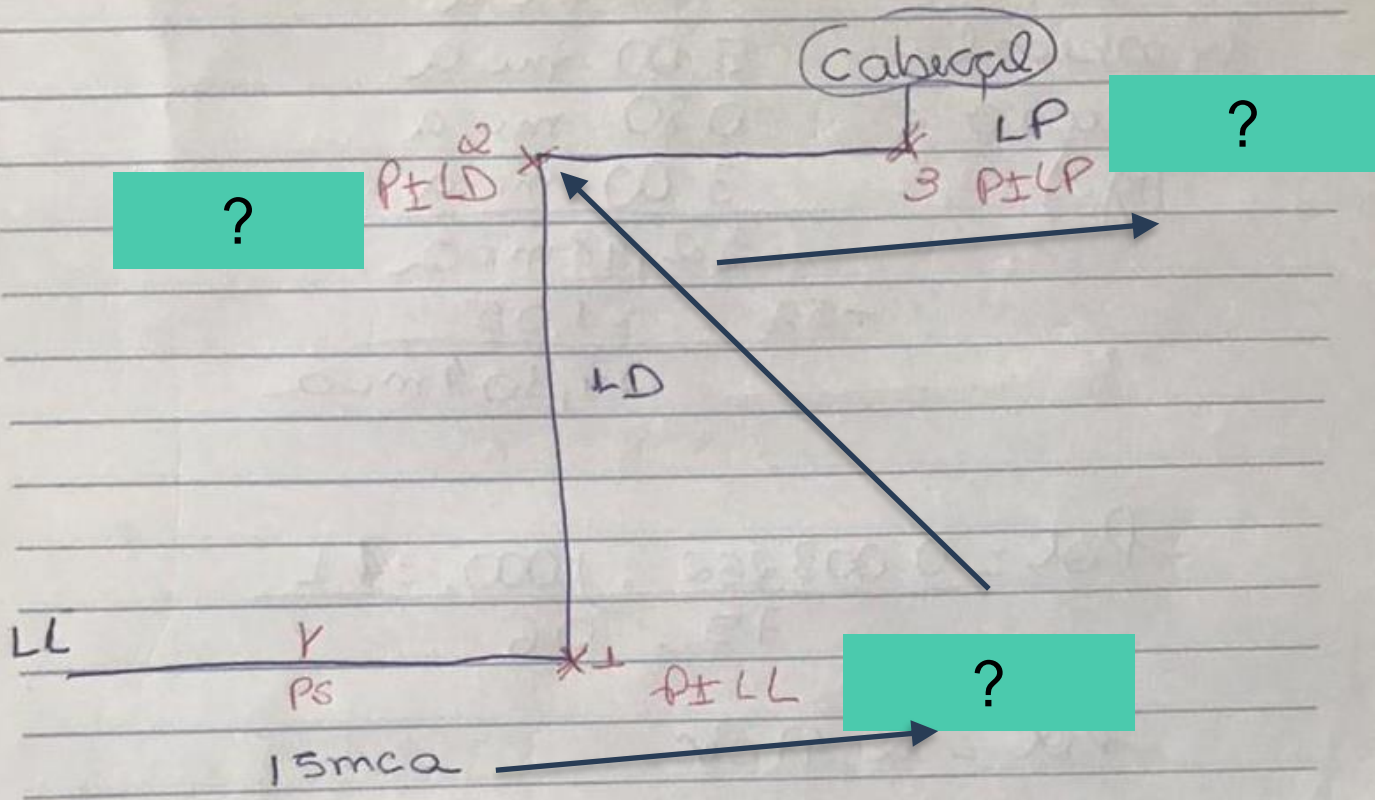 Cabeçal
LP
?
2
PILD
3 PILP
?
LD
LL
1
PILL
?
PS
15mca